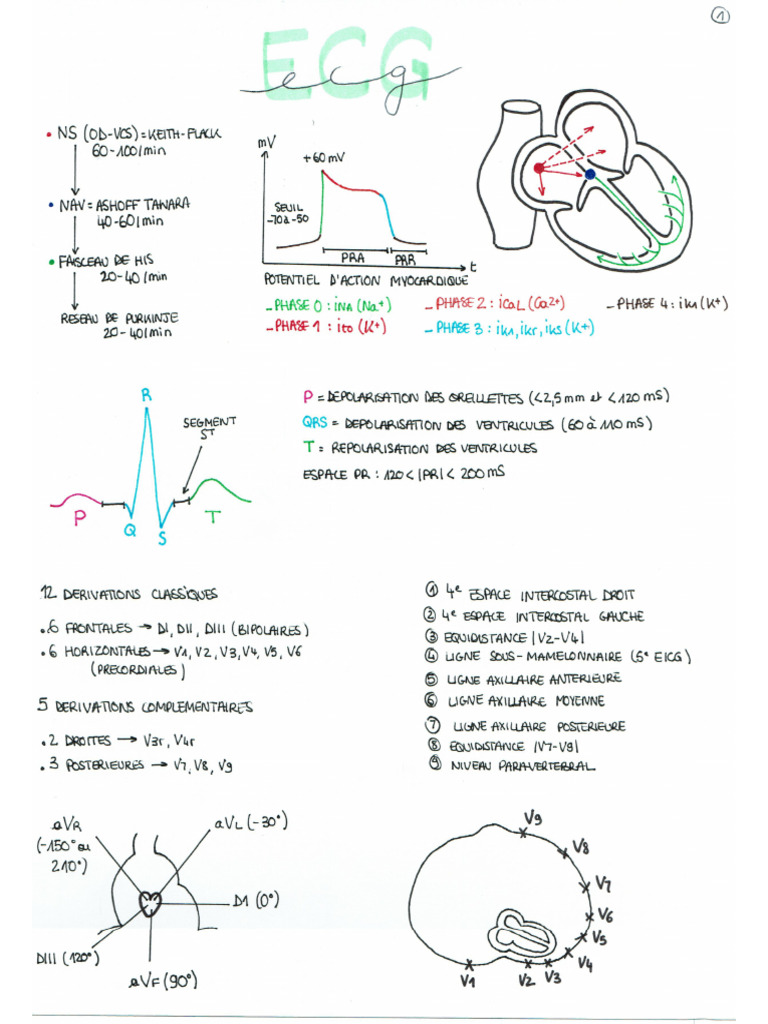 1
ECG
ecg
• NS (OD-VCS) = KEITH-FLACK
60-100/min
• NAV = ASHOFF TAWARA
40-60/min
• FAISCEAU DE HIS
20-40/min
RESEAU DE PURKINJE
20-40/min
mV
+60mV
SEUIL
-70 à -50
PRA
PRR
t
POTENTIEL D'ACTION MYOCARDIQUE
- PHASE 0 : iNA (Na+)
- PHASE 1 : ito (K+)
- PHASE 2 : iCaL (Ca2+)
- PHASE 3 : ik1, ikr, iks (K+)
- PHASE 4 : ik1 (K+)
R
SEGMENT
ST
P
Q
S
T
P = DEPOLARISATION DES OREILLETTES (<2,5mm et <120mS)
QRS = DEPOLARISATION DES VENTRICULES (60 à 110mS)
T = REPOLARISATION DES VENTRICULES
ESPACE PR : 120 < |PR| < 200 mS
12 DERIVATIONS CLASSIQUES
. 6 FRONTALES → DI, DII, DIII (BIPOLAIRES)
. 6 HORIZONTALES → V1, V2, V3, V4, V5, V6
(PRECORDIALES)
5 DERIVATIONS COMPLEMENTAIRES
. 2 DROITES → V3r, V4r
. 3 POSTERIEURES → V7, V8, V9
① 4e ESPACE INTERCOSTAL DROIT
② 4e ESPACE INTERCOSTAL GAUCHE
③ EQUIDISTANCE |V2-V4|
④ LIGNE SOUS-MAMELONNAIRE (5e EICG)
⑤ LIGNE AXILLAIRE ANTERIEURE
⑥ LIGNE AXILLAIRE MOYENNE
⑦ LIGNE AXILLAIRE POSTERIEURE
⑧ EQUIDISTANCE |V7-V9|
⑨ NIVEAU PARAVERTEBRAL
aVR
(-150° ou
210°)
aVL (-30°)
D1 (0°)
DIII (120°)
aVF (90°)
V9
V8
V7
V6
V5
V4
V3
V2
V1